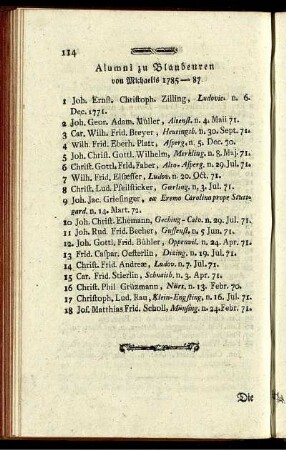 114
Alumni zu Blaubeuren
von Michaelis 1785—87.
1 Joh. Ernst. Christoph. Zilling, Ludovic. n. 6.
Dec. 1771.
2 Joh. Geor. Adam. Müller, Altenst. n. 4. Maii 71.
3 Car. Wilh. Frid. Breyer, Heutingsh. n. 30. Sept. 71.
4 Wilh. Frid. Eberh. Platt, Asperg. n. 5. Dec. 70.
5 Joh. Christ. Gottl. Wilhelm, Merkling. n. 8. Maj. 71.
6 Christ. Gottl. Frid. Faber, Alto-Asperg. n. 29. Jul. 71.
7 Wilh. Frid. Elsæsser, Ludov. n. 20. Oct. 71.
8 Christ. Lud. Pfeilsticker, Gærling. n. 3. Jul. 71.
9 Joh. Jac. Griesinger, ex Eremo Carolina prope Stutt-
gard. n. 14. Mart. 72.
10 Joh. Christ. Ehemann, Geching-Calv. n. 29. Jul. 71.
11 Joh. Rud. Frid. Becher, Gussenst. n. 5 Jun. 71.
12 Joh. Gottl. Frid. Bühler, Oppenwil. n. 24. Apr. 71.
13 Frid. Caspar. Oesterlin, Dizing. n. 19. Jul. 71.
14 Christ. Frid. Andreæ, Ludov. n. 7. Jul. 71.
15 Car. Frid. Stierlin, Schwaib. n. 3. Apr. 71.
16 Christ. Phil Grüzmann, Nürt. n. 13. Febr. 70.
17 Christoph. Lud. Rau, Klein-Engsting. n. 16. Jul. 71.
18 Jos. Matthias Frid. Scholl, Münsing. n. 24. Febr. 71.
Die